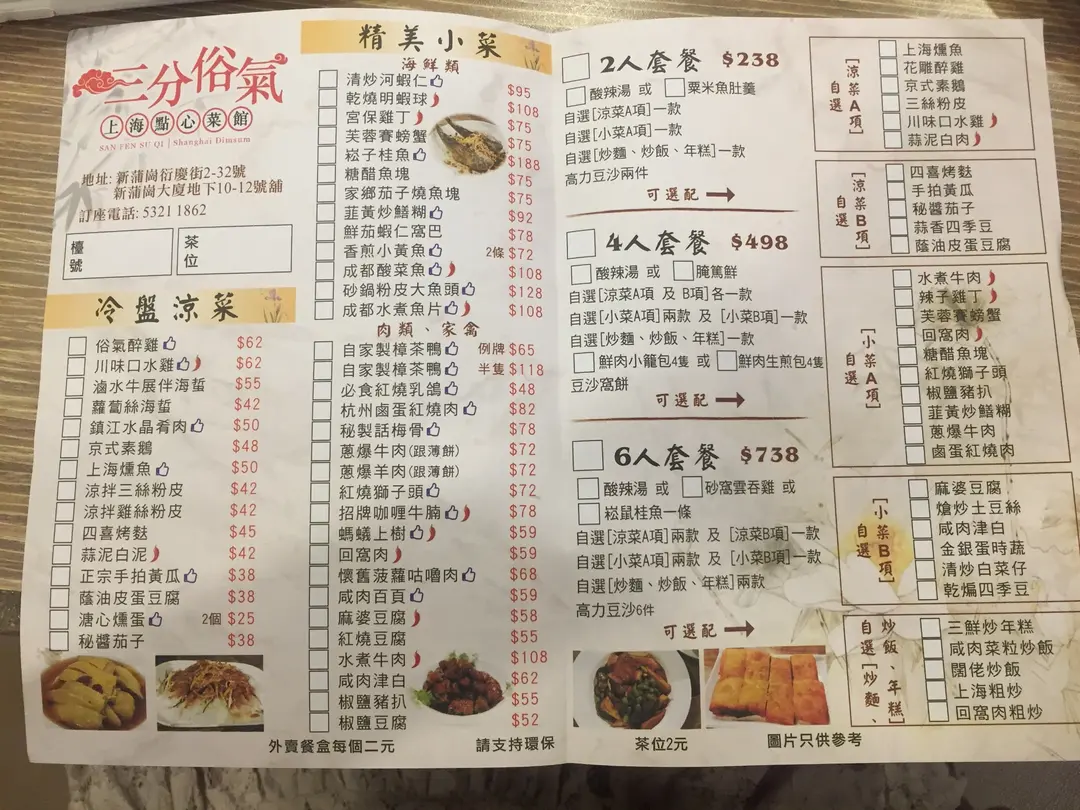 三分俗氣
上海點心菜館
SAN FEN SU QI | Shanghai Dimsum
地址: 新蒲崗衍慶街2-32號
新蒲崗大廈地下10-12號舖
訂座電話: 5321 1862
檯號
茶位
冷盤涼菜
俗氣醉雞 $62
川味口水雞 $62
滷水牛展伴海蜇 $55
蘿蔔絲海蜇 $42
鎮江水晶肴肉 $50
京式素鵝 $48
上海燻魚 $50
涼拌三絲粉皮 $42
涼拌雞絲粉皮 $42
四喜烤麩 $45
蒜泥白泥 $42
正宗手拍黃瓜 $38
蔭油皮蛋豆腐 $38
溏心燻蛋 2個 $25
秘醬茄子 $38
精美小菜
海鮮類
清炒河蝦仁 $95
乾燒明蝦球 $108
宮保雞丁 $75
芙蓉賽螃蟹 $75
崧子桂魚 $188
糖醋魚塊 $75
家鄉茄子燒魚塊 $75
韮黃炒鱔糊 $92
鮮茄蝦仁窩巴 $78
香煎小黃魚 2條 $72
成都酸菜魚 $108
砂鍋粉皮大魚頭 $128
成都水煮魚片 $108
肉類、家禽
自家製樟茶鴨 例牌 $65
自家製樟茶鴨 半隻 $118
必食紅燒乳鴿 $48
杭州鹵蛋紅燒肉 $82
秘製話梅骨 $78
蔥爆牛肉(跟薄餅) $72
蔥爆羊肉(跟薄餅) $72
紅燒獅子頭 $72
招牌咖喱牛腩 $78
螞蟻上樹 $59
回窩肉 $59
懷舊菠蘿咕嚕肉 $68
咸肉百頁 $59
麻婆豆腐 $58
紅燒豆腐 $55
水煮牛肉 $108
咸肉津白 $62
椒鹽豬扒 $55
椒鹽豆腐 $52
外賣餐盒每個二元
請支持環保
2人套餐 $238
酸辣湯 或 粟米魚肚羹
自選[涼菜A項]一款
自選[小菜A項]一款
自選[炒麵、炒飯、年糕]一款
高力豆沙兩件
可選配
4人套餐 $498
酸辣湯 或 腌篤鮮
自選[涼菜A項 及 B項]各一款
自選[小菜A項]兩款 及 [小菜B項]一款
自選[炒麵、炒飯、年糕]一款
鮮肉小籠包4隻 或 鮮肉生煎包4隻
豆沙窩餅
可選配
6人套餐 $738
酸辣湯 或 砂窩雲吞雞 或
崧鼠桂魚一條
自選[涼菜A項]兩款 及 [涼菜B項]一款
自選[小菜A項]兩款 及 [小菜B項]一款
自選[炒麵、炒飯、年糕]兩款
高力豆沙6件
可選配
茶位2元
圖片只供參考
自選[涼菜A項]
上海燻魚
花雕醉雞
京式素鵝
三絲粉皮
川味口水雞
蒜泥白肉
自選[涼菜B項]
四喜烤麩
手拍黃瓜
秘醬茄子
蒜香四季豆
蔭油皮蛋豆腐
自選[小菜A項]
水煮牛肉
辣子雞丁
芙蓉賽螃蟹
回窩肉
糖醋魚塊
紅燒獅子頭
椒鹽豬扒
韮黃炒鱔糊
蔥爆牛肉
鹵蛋紅燒肉
自選[小菜B項]
麻婆豆腐
熗炒土豆絲
咸肉津白
金銀蛋時蔬
清炒白菜仔
乾煸四季豆
自選[炒麵、炒飯、年糕]
三鮮炒年糕
咸肉菜粒炒飯
闊佬炒飯
上海粗炒
回窩肉粗炒